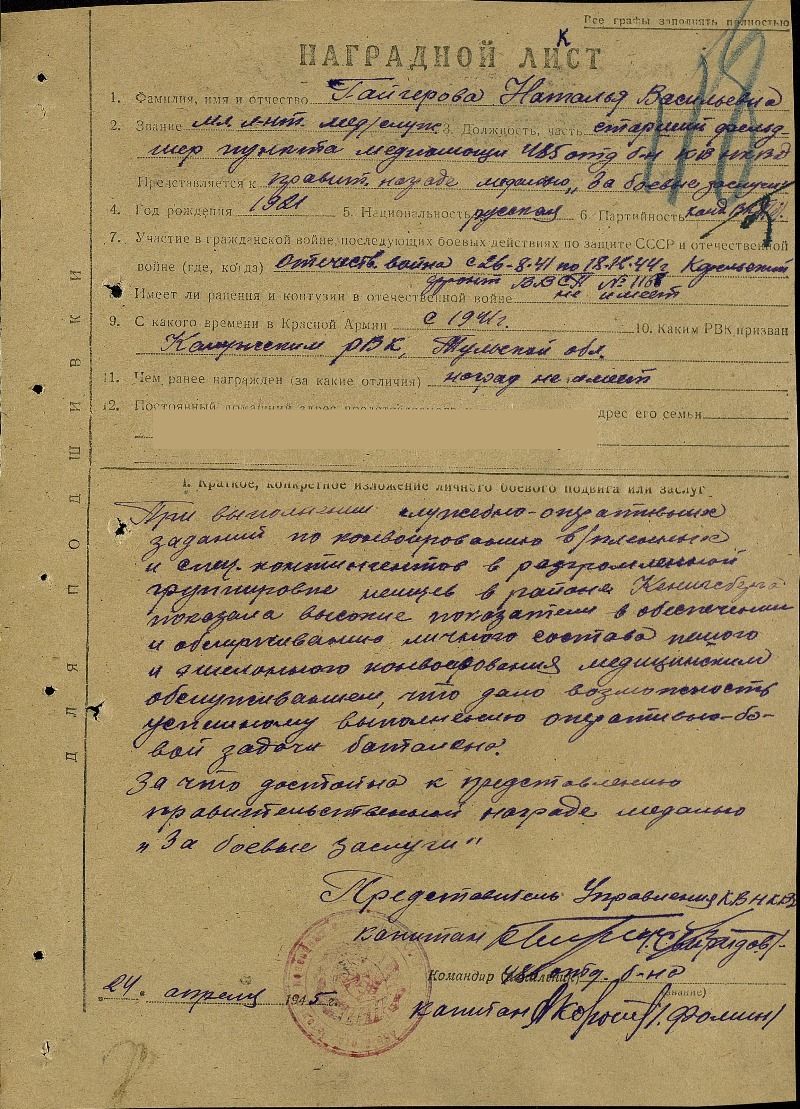 Все графы заполнять полностью
118
К
НАГРАДНОЙ ЛИСТ
1. Фамилия, имя и отчество Гайгерова Наталья Васильевна
2. Звание мл. л-нт. мед/служ 3. Должность, часть старший фельд-
шер пункта медпомощи 485 отд. б-н КВ НКВД
Представляется к правит. награде медалью „За боевые заслуги
4. Год рождения 1921 5. Национальность русская 6. Партийность канд.
7. Участие в гражданской войне, последующих боевых действиях по защите СССР и отечественной
войне (где, когда) отечеств. война с 26-8-41 по 18.12.44 г Карельский
фронт №
8. Имеет ли ранения и контузии в отечественной войне не имеет
9. С какого времени в Красной Армии с 1941г. 10. Каким РВК призван
Калужским РВК, Тульской обл.
11. Чем ранее награжден (за какие отличия) наград не имеет
12. Постоянный домашний адрес дрес его семьи
ДЛЯ ПОДШИВКИ
I. Краткое, конкретное изложение личного боевого подвига или заслуг
При выполнении служебно-оперативных
заданий по конвоированию в/пленных
и спец. контингентов в разгромленной
группировке немцев в районе Кенигсберга
показала высокие показатели в обеспечении
и обслуживанию личного состава пешего
и эшелонного конвоирования медицинским
обслуживанием, что дало возможность
успешному выполнению оперативно-бо-
вой задачи баталиона.
За что достойна к представлению
правительственной награде медалью
„За боевые заслуги"
Представитель Управления КВ НКВД
капитан /Свиридов/
Командир 485 отд. б-на
24 апреля 1945
капитан /Фомин/
(звание)